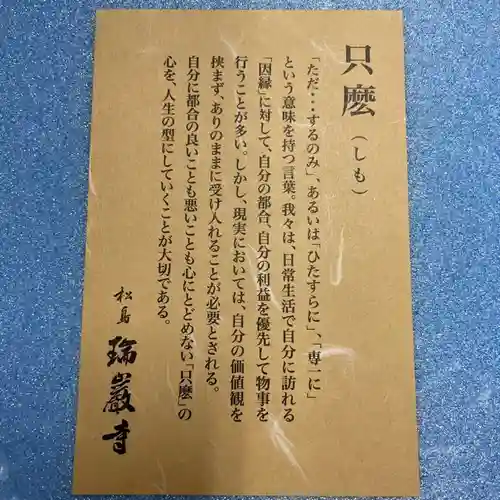 只麼（しも）
「ただ・・・するのみ」、あるいは「ひたすらに」、「専一に」
という意味を持つ言葉。我々は、日常生活で自分に訪れる
「因縁」に対して、自分の都合、自分の利益を優先して物事を
行うことが多い。しかし、現実においては、自分の価値観を
挟まず、ありのままに受け入れることが必要とされる。
自分に都合の良いことも悪いことも心にとどめない「只麼」の
心を、人生の型にしていくことが大切である。
松島 瑞巖寺